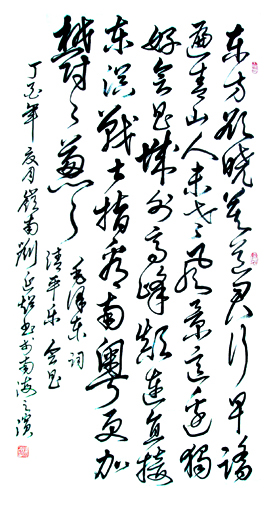 东方欲晓莫道君行早踏
遍青山人未老风景这边独
好会昌城外高峰颠连直接
东溟战士指看南粤更加
郁々葱々
毛泽东词
清平乐会昌
年夏月岭南刘延超书于南海之滨